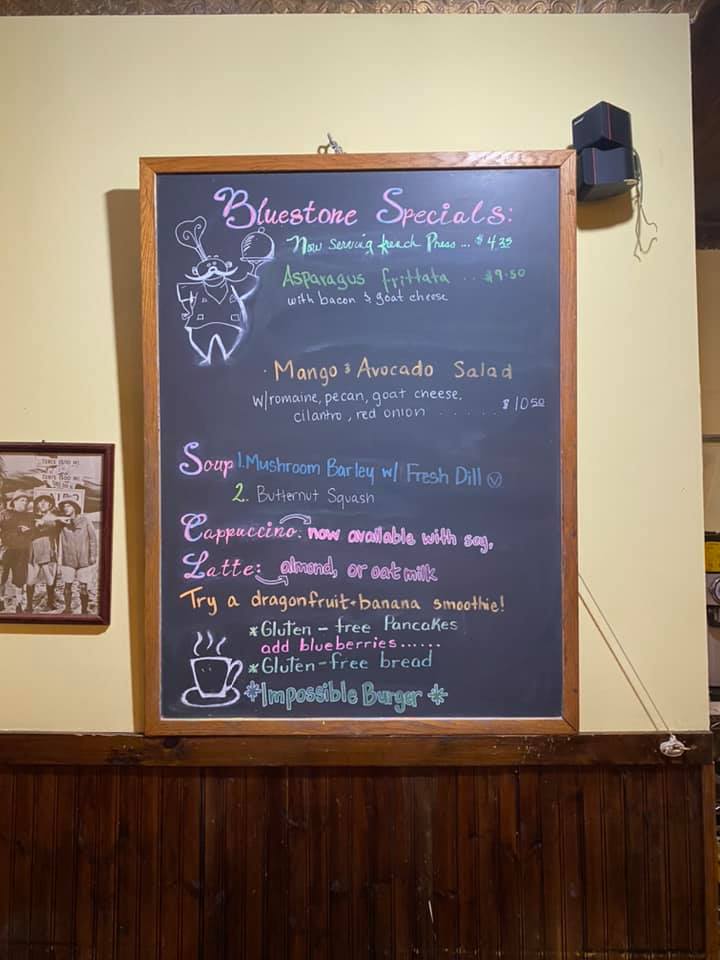 Bluestone Specials:
Now serving french Press ... $4.35
Asparagus frittata .. $9.50
with bacon & goat cheese
· Mango & Avocado Salad
w/romaine, pecan, goat cheese,
cilantro, red onion ...... $10.50
Soup 1. Mushroom Barley w/ Fresh Dill Ⓥ
2. Butternut Squash
Cappuccino: now available with soy,
Latte: almond, or oat milk
Try a dragonfruit-banana smoothie!
*Gluten-free Pancakes
add blueberries......
*Gluten-free bread
*Impossible Burger*